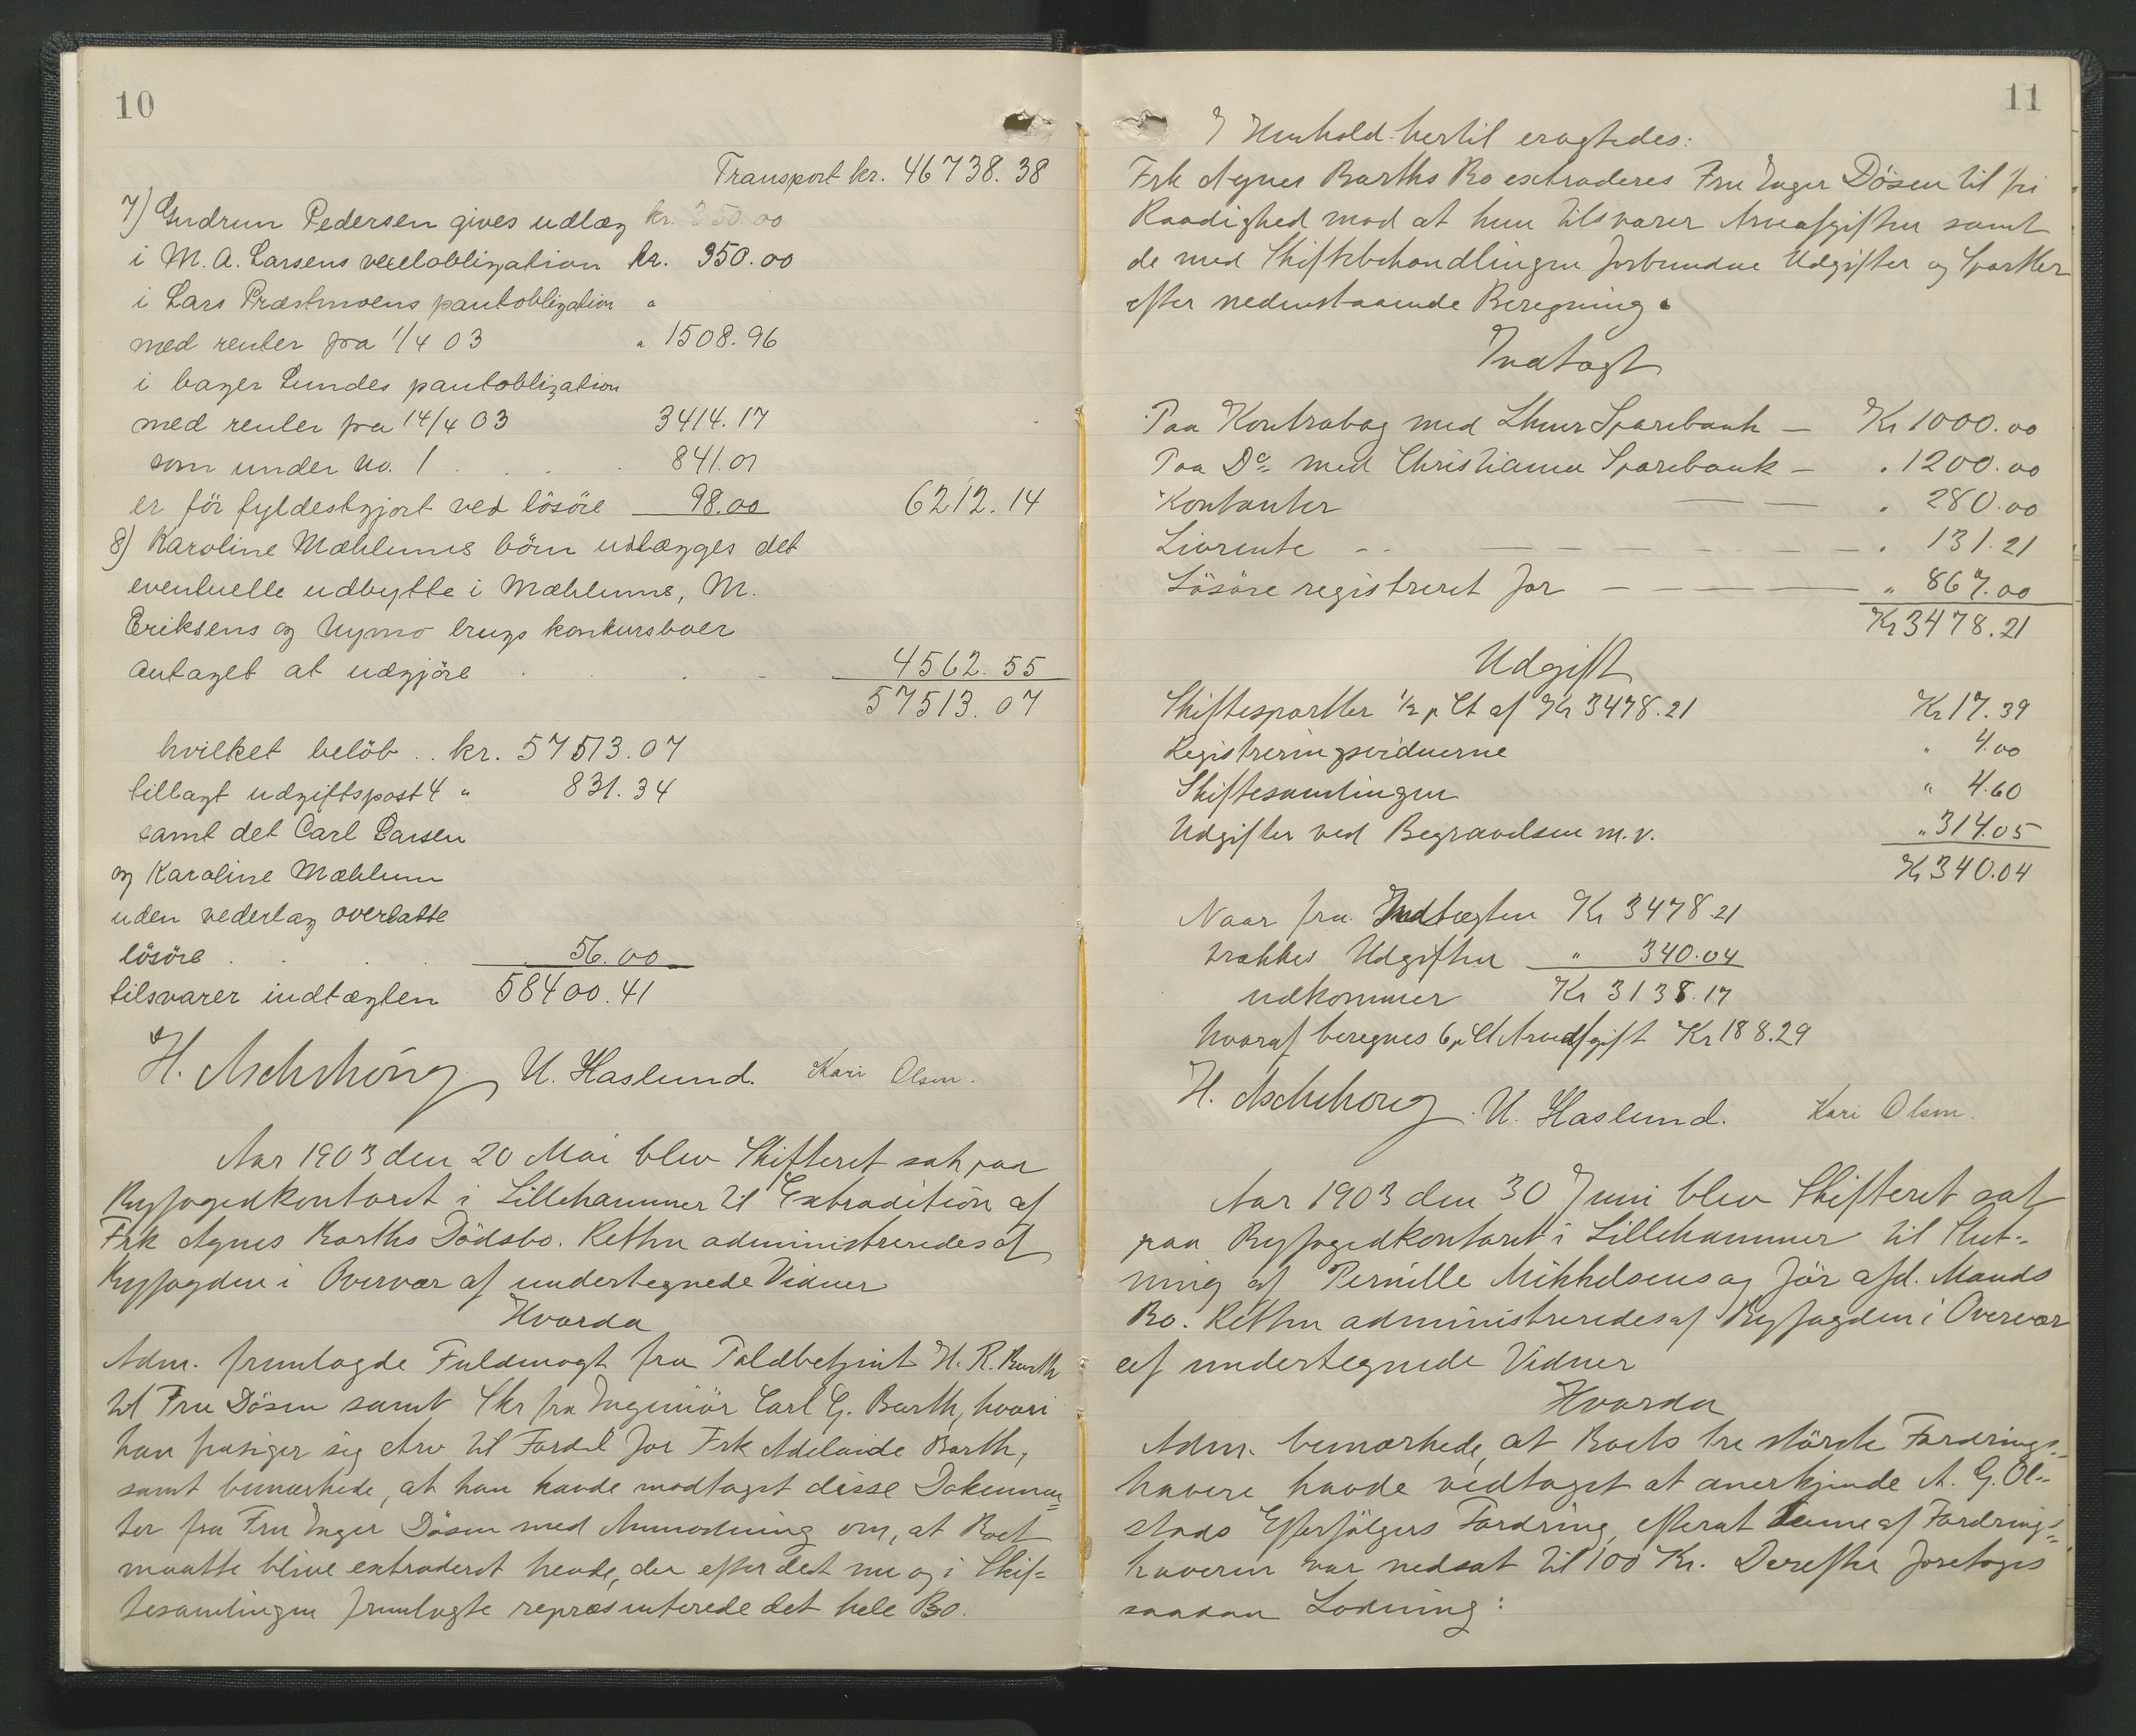 10
Transport kr. 46738.38
7) Gudrun Pedersen gives udlæg kr. 350.00
i M. A. Larsens vexelobligation kr. 350.00
i Lars Præstmoens pantobligation "
med renter fra 1/4 03 " 1508.96
i bager Lundes pantobligation
med renter fra 14/4 03 3414.17
som under no. 1 . . . 841.01
er för fyldestgjort ved lösöre 98.00 6212.14
8) Karoline Mæhlums börn udlægges det
eventuelle udbytte i Mæhlums, M.
Eriksens og Nymo brugs konkursboer
antaget at udgjöre . . . 4562.55
57513.07
hvilket belöb .. kr. 57513.07
tillagt udgiftspost 4 " 831.34
samt det Carl Larsen
og Karoline Mæhlum
uden vederlag overlatte
lösöre . . . 56.00
tilsvarer indtægten 58400.41
H. Aschehoug U. Haslund. Kari Olsen.
Aar 1903 den 20 Mai blev Skifteret sat paa
Byfogedkontoret i Lillehammer til Extradition af
Frk Agnes Barths Dödsbo. Retten administreredes af
Byfogden i Overvær af undertegnede Vidner
Hvorda
Adm. fremlagde Fuldmagt fra Toldbetjent H. R. Barth
til Fru Dösen samt Skr fra Ingeniör Carl G. Barth, hvori
han frasiger sig Arv til Fordel for Frk Adelaide Barth,
samt bemærkede, at han havde modtaget disse Dokumen=
ter fra Fru Inger Dösen med Anmodning om, at Boet
maatte blive extraderet hende, der efter det nu og i Skif=
tesamlingen fremlagte repræsenterede det hele Bo.
11
I Henhold hertil eragtedes:
Frk Agnes Barths Bo extraderes Fru Inger Dösen til fri
Raadighed mod at hun tilsvarer Arveafgiften samt
de med Skiftebehandlingen forbundne Udgifter og Sportler
efter nedenstaaende Beregning.
Indtægt
Paa Kontrabog med Lhmr Sparebank — Kr 1000.00
Paa Do med Christiania Sparebank — " 1200.00
Kontanter — — " 280.00
Livrente — — — " 131.21
Lösöre registreret for — — — " 867.00
Kr 3478.21
Udgift
Skiftesportler 1/2 p Ct af Kr 3478.21 Kr 17.39
Registreringsvidnerne " 4.00
Skiftesamlingen " 4.60
Udgifter ved Begravelsen m.v. " 314.05
Kr 340.04
Naar fra Indtægten Kr 3478.21
trækkes Udgiften " 340.04
udkommer Kr 3138.17
hvoraf beregnes 6 p Ct Arveafgift Kr 188.29
H. Aschehoug U. Haslund. Kari Olsen.
Aar 1903 den 30 Juni blev Skifteret sat
paa Byfogedkontoret i Lillehammer til Slut=
ning af Pernille Mikkelsens og för afd. Mands
Bo. Retten administreredes af Byfogden i Overvær
af undertegnede Vidner
Hvorda
Adm. bemærkede, at Boets tre störste Fordrings=
havere havde vedtaget at anerkjende A. G. Ol=
stads Efterfölgers Fordring, efterat denne af Fordrings=
haveren var nedsat til 100 Kr. Derefter foretoges
saadan Lodning: